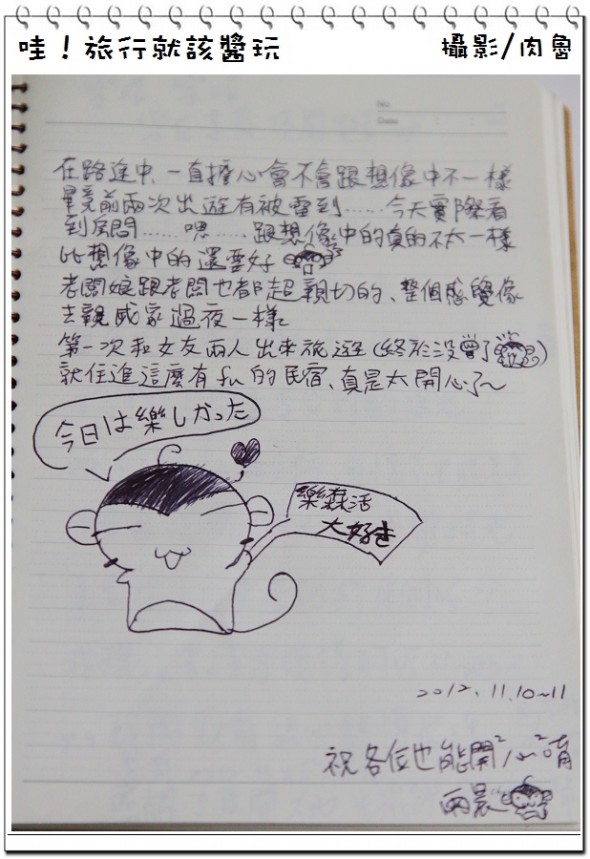 哇！旅行就該醬玩
攝影/肉魯
No.
Date
在路途中、一直擔心會不會跟想像中不一樣
畢竟前兩次出遊有被雷到……今天實際看
到房間……嗯……跟想像中的真的不太一樣
比想像中的還要好
老闆娘跟老闆也都超親切的、整個感覺像
去親戚家過夜一樣
第一次和女友兩人出來旅遊(終於沒曾了)
就住進這麼有fu的民宿、真是太開心了~
今日は樂しかった
樂森活
大好き
2012.11.10~11
祝各位也能開²心²唷
雨晨